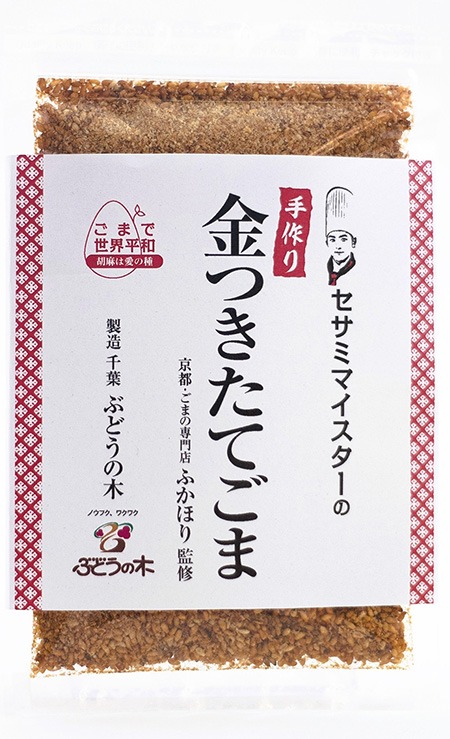 セサミマイスターの
手作り
金つきたてごま
京都・ごまの専門店 ふかほり 監修
ごまで
世界平和
胡麻は愛の種
製造 千葉 ぶどうの木
ノウフク、ワクワク
ぶどうの木